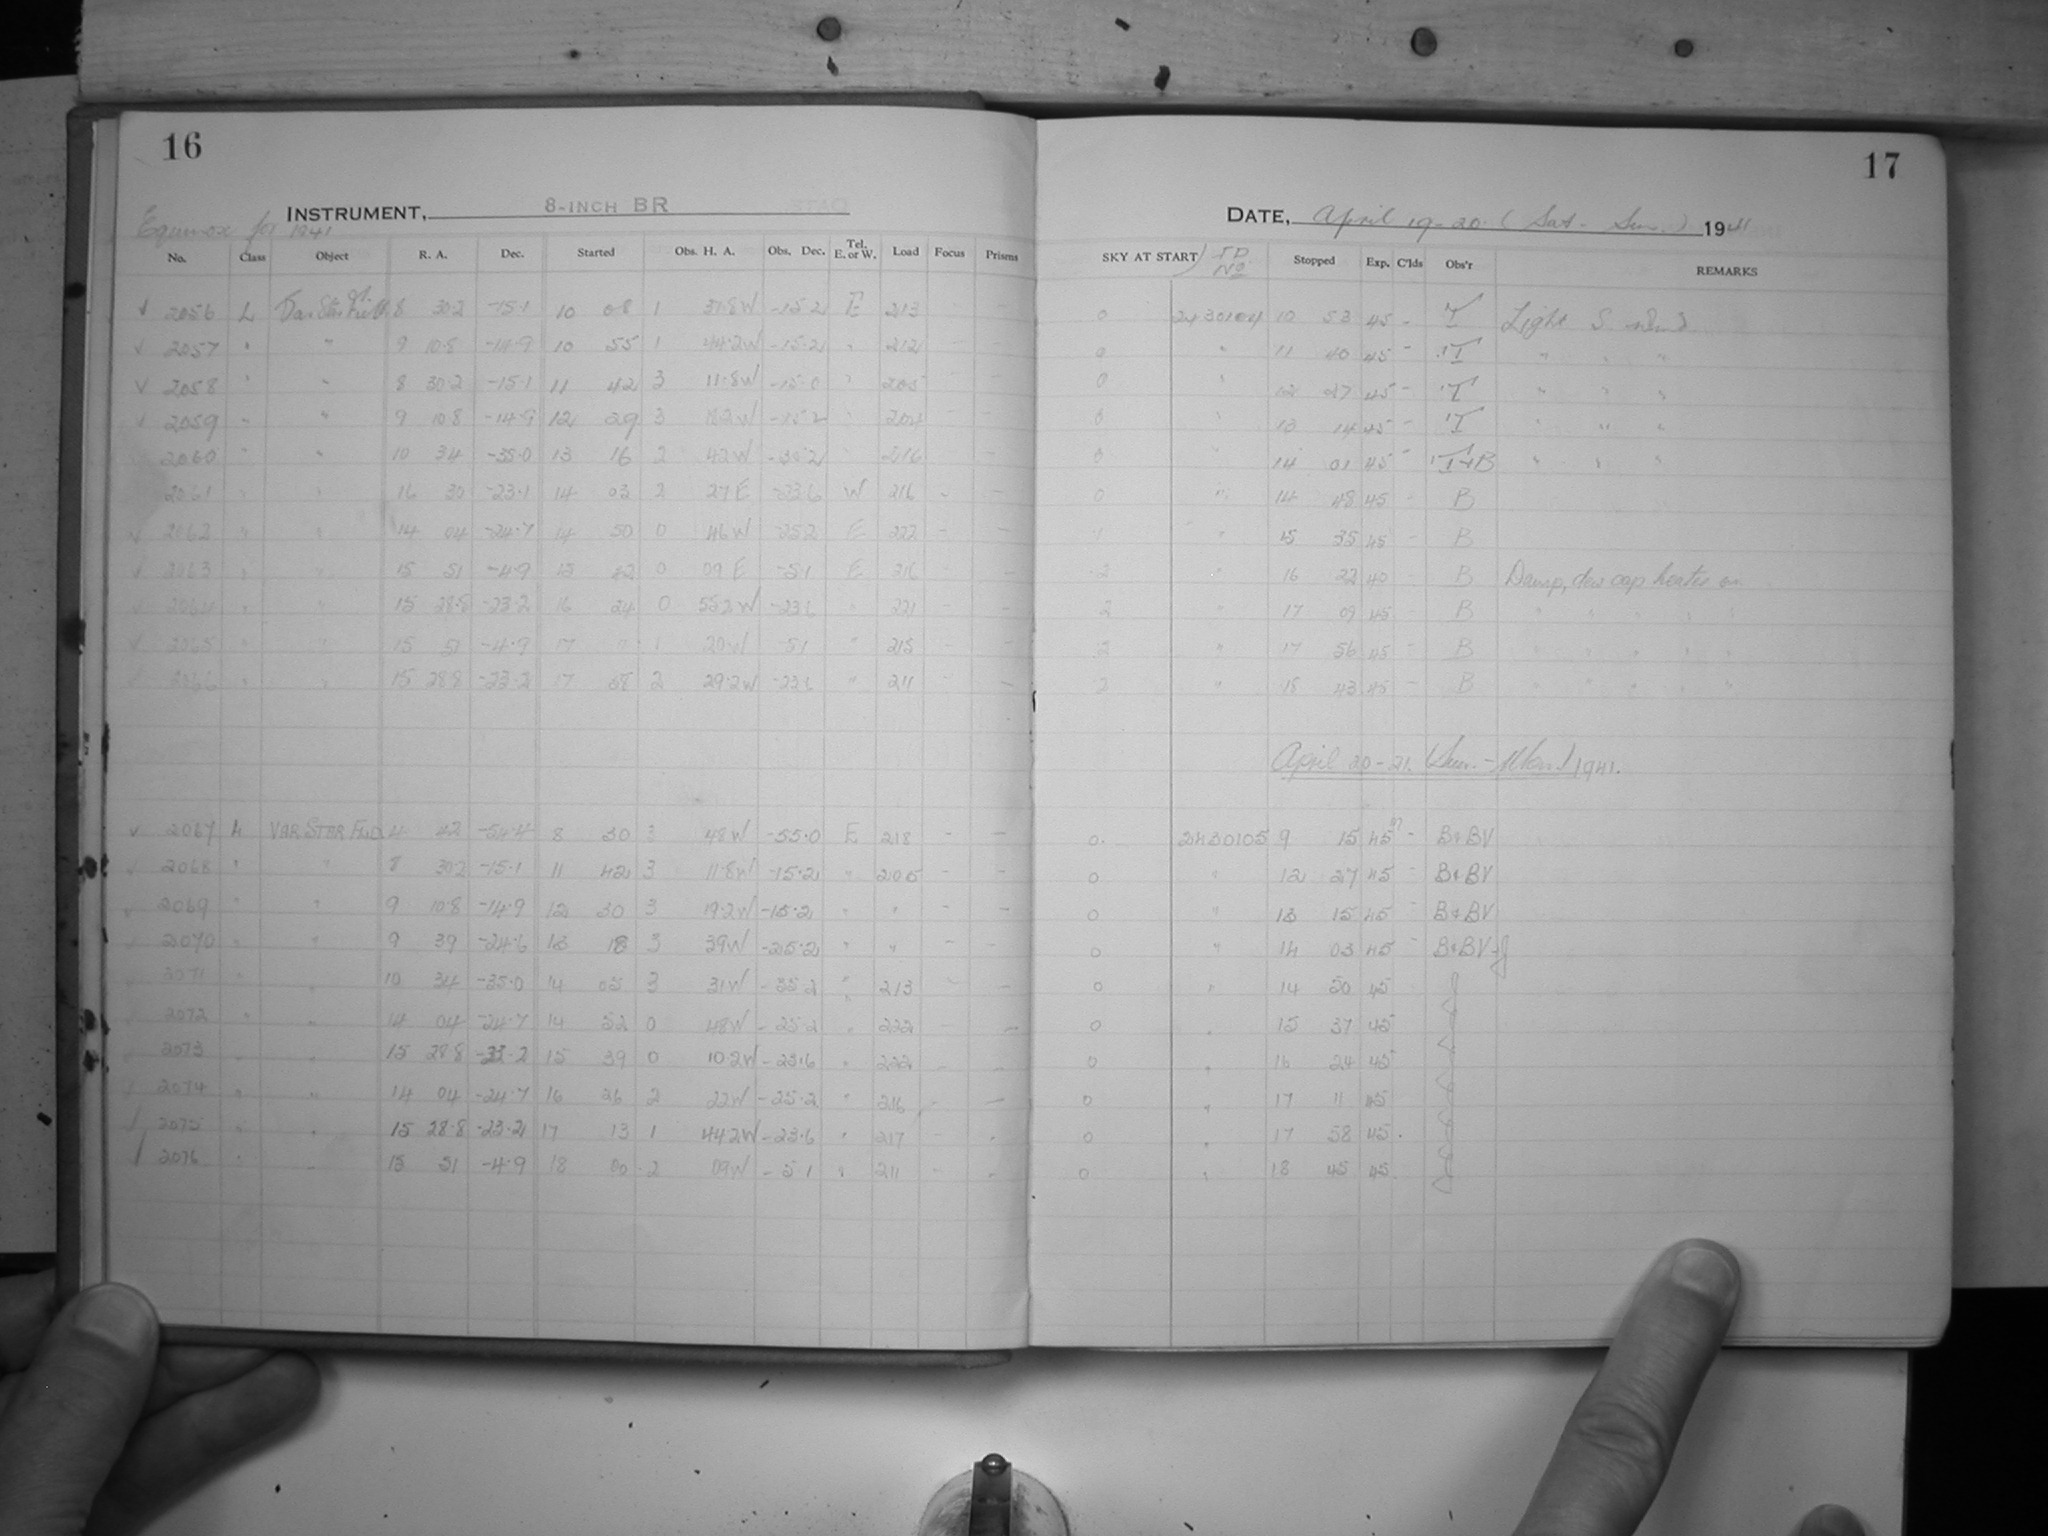 16
INSTRUMENT, 8-INCH BR
Equinox for 1941
No. Class Object R. A. Dec. Started Obs. H. A. Obs. Dec. Tel. E. or W. Load Focus Prisms
2056 L Var Star Field 8 30.2 -15.1 10 08 1 37.8W -15.2 E 213
2057 " " 9 10.8 -14.9 10 55 1 44.2W -15.2 " 212
2058 " " 8 30.2 -15.1 11 42 3 11.8W -15.0 " 205
2059 " " 9 10.8 -14.9 12 29 3 -15.2 " 204
2060 " " 10 34 -35.0 13 16 2 42W -35.2 " 216
2061 " " 16 30 -23.1 14 03 2 27E -23.6 W 216 - -
2062 " " 14 04 -24.7 14 50 0 46W -25.2 E 222 - -
2063 " " 15 51 -4.9 15 42 0 09E -5.1 E 216 - -
2064 " " 15 28.8 -23.2 16 24 0 55.2W -23.6 " 221 - -
2065 " " 15 51 -4.9 17 1 20W -5.1 " 215 - -
2066 " " 15 28.8 -23.2 17 58 2 29.2W -23.6 " 211 - -
2067 L VAR STAR FIELD 4 42 -54.4 8 30 3 48W -55.0 E 218 - -
2068 " " 8 30.2 -15.1 11 42 3 11.8W -15.2 " 205 - -
2069 " " 9 10.8 -14.9 12 30 3 19.2W -15.2 " " - -
2070 " " 9 39 -24.6 13 18 3 39W -25.2 " " - -
2071 " " 10 34 -35.0 14 05 3 31W -35.2 " 213 - -
2072 " " 14 04 -24.7 14 52 0 48W -25.2 " 222 - -
2073 " " 15 28.8 -23.2 15 39 0 10.2W -23.6 " 222 - -
2074 " " 14 04 -24.7 16 26 2 22W -25.2 " 216 - -
2075 " " 15 28.8 -23.2 17 13 1 44.2W -23.6 " 217 - -
2076 " " 15 51 -4.9 18 00 2 09W -5.1 " 211 - -
17
DATE, April 19-20 (Sat - Sun.) 1941
SKY AT START J.D. No Stopped Exp. C'lds Obs'r REMARKS
0 2430104 10 53 45 - T Light S. wind
0 " 11 40 45 - T " " "
0 " 12 27 45 - T " " "
0 " 13 14 45 - T " " "
0 " 14 01 45 - T+B " " "
0 " 14 48 45 - B
1 " 15 35 45 - B
2 " 16 22 40 - B Damp, dew cap heater on
2 " 17 09 45 - B " " " " "
2 " 17 56 45 - B " " " " "
2 " 18 43 45 - B " " " " "
April 20-21. (Sun. - Mon.) 1941.
0. 2430105 9 15 45m - B+BV
0 " 12 27 45 - B+BV
0 " 13 15 45 - B+BV
0 " 14 03 45 - B+BV+J
0 " 14 50 45 J
0 " 15 37 45 J
0 " 16 24 45 J
0 " 17 11 45 J
0 " 17 58 45 J
0 " 18 45 45 J